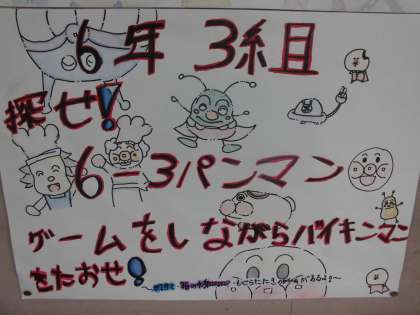 6年 3組
探せ!
6-3パンマン
ゲームをしながらバイキンマン
をたおせ!